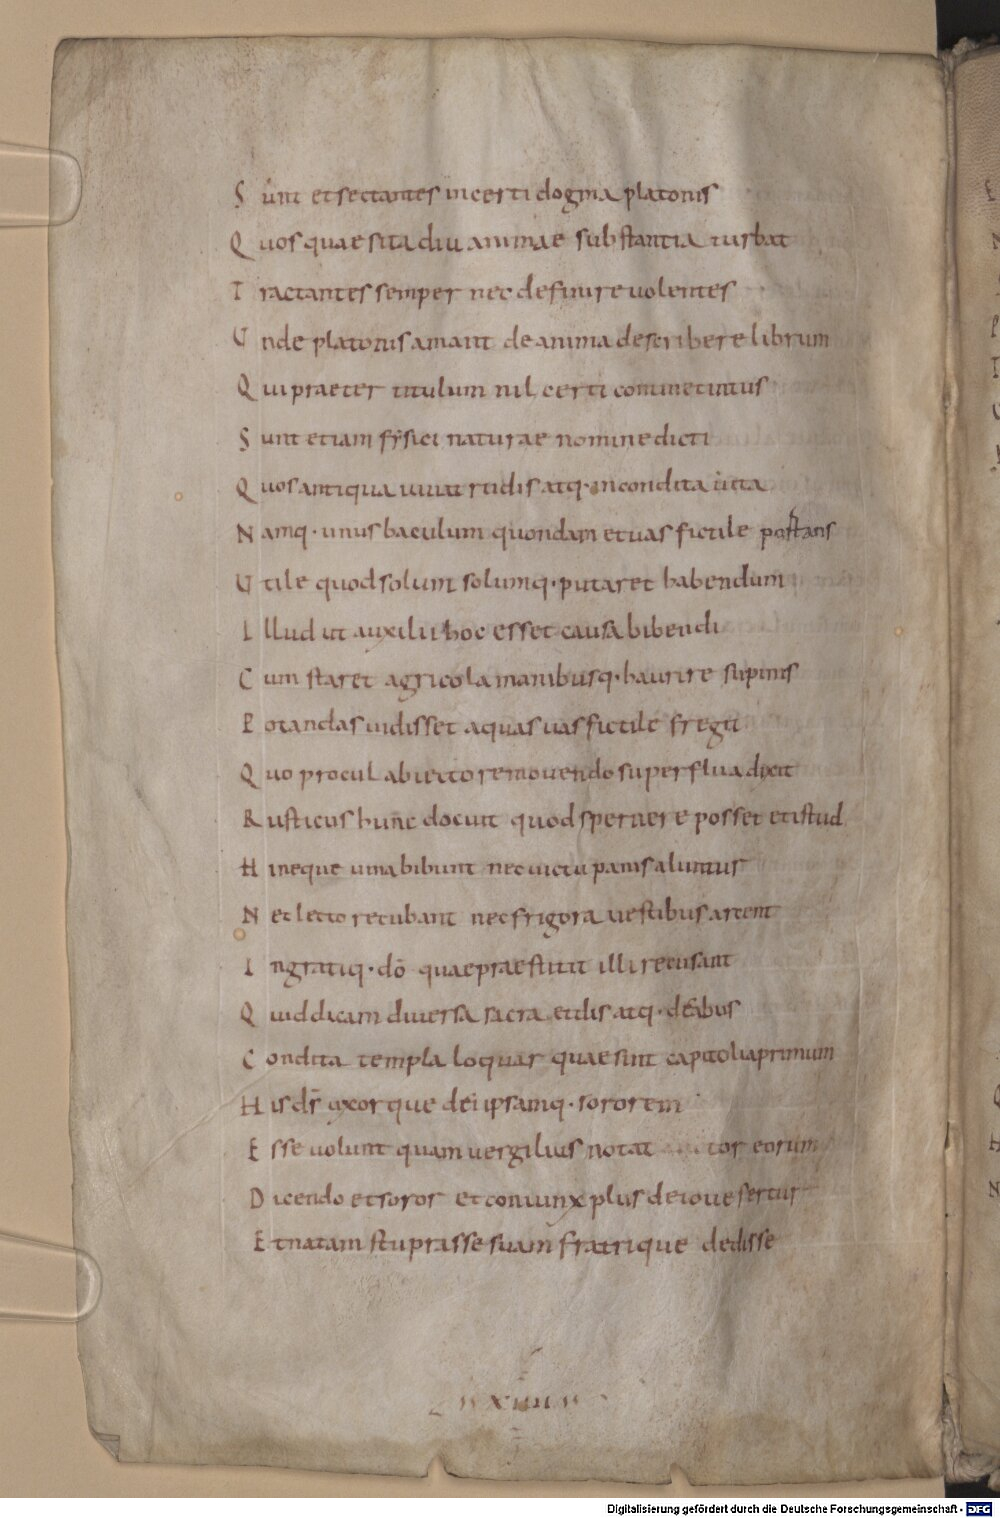 Sunt et sectantes incerti dogma platonis
Quos quaesita diu animae substantia turbat
Tractantes semper nec definire uolentes
Unde platonis amant de anima describere librum
Qui praeter titulum nil certi continet intus
Sunt etiam fysici naturae nomine dicti
Quos antiqua iuuat rudis atq· incondita uita
Namq· unus baculum quondam et uas fictile portans
Utile quod solum solumq· putaret habendum
Illud ut auxilii hoc esset causa bibendi
Cum staret agricola manibusq· haurire supinis
Potandas uidisset aquas uas fictile fregit
Quo procul abiecto remouendo superflua dixit
Rusticus hunc docuit quod spernere posset et istud
Hineque uina bibunt nec uictu panis aluntur
Nec lecto recubant nec frigora uestibus arcent
Ingratiq· dō quae praestitit illi recusant
Quid dicam diuersa sacra et dis atq· deabus
Condita templa loquar quae sint capitolia primum
His dſ uxorque dei ipsamq· sororem
Esse uolunt quam uergilius notat auctor eorum
Dicendo et soror et coniunx plus de ioue fertur
Et natam stuprasse suam fratrique dedisse
Digitalisierung gefördert durch die Deutsche Forschungsgemeinschaft - DFG